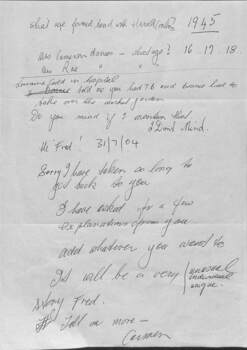 what age formed band with 1945
was Cameron dancer - what age? 16 - 17 - 18.
was Rae " "
in hospital
told me you had TB and had to
take over the
Do you mind if I mention that.
I Don't Mind.
Hi Fred! 31/7/04
Sorry I have taken so long to
get back to you
I have asked for a few
explanations from you
add whatever you want to
It will be a very unusual
individual
unique.
story Fred.
Tell me more -
Carmen